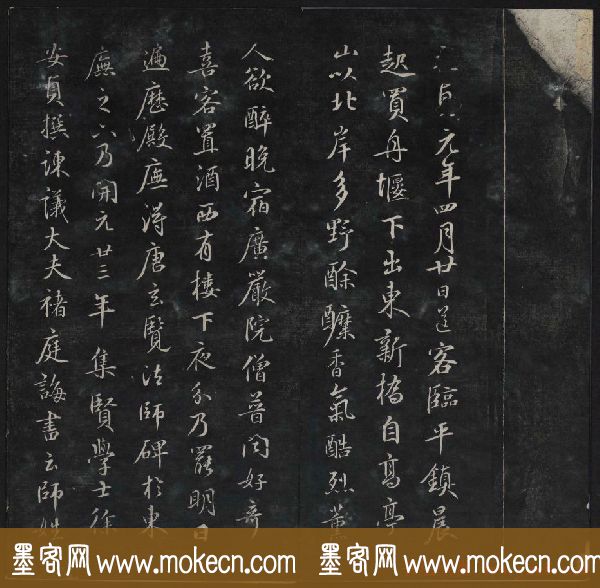 元年四月廿日送客臨平鎮晨
起買舟堰下出東新橋自高亭
山以北岸多野酴醾香氣酷烈薰
人欲醉晚宿廣嚴院僧普閏好奇
喜客置酒西有樓下夜分乃罷明日
遍歷殿廡得唐玄覽法師碑於東
廡之下乃開元廿三年集賢學士徐
安貞撰諫議大夫褚庭誨書云師姓
墨客网 www.mokecn.com 墨客网 www.mokecn.com